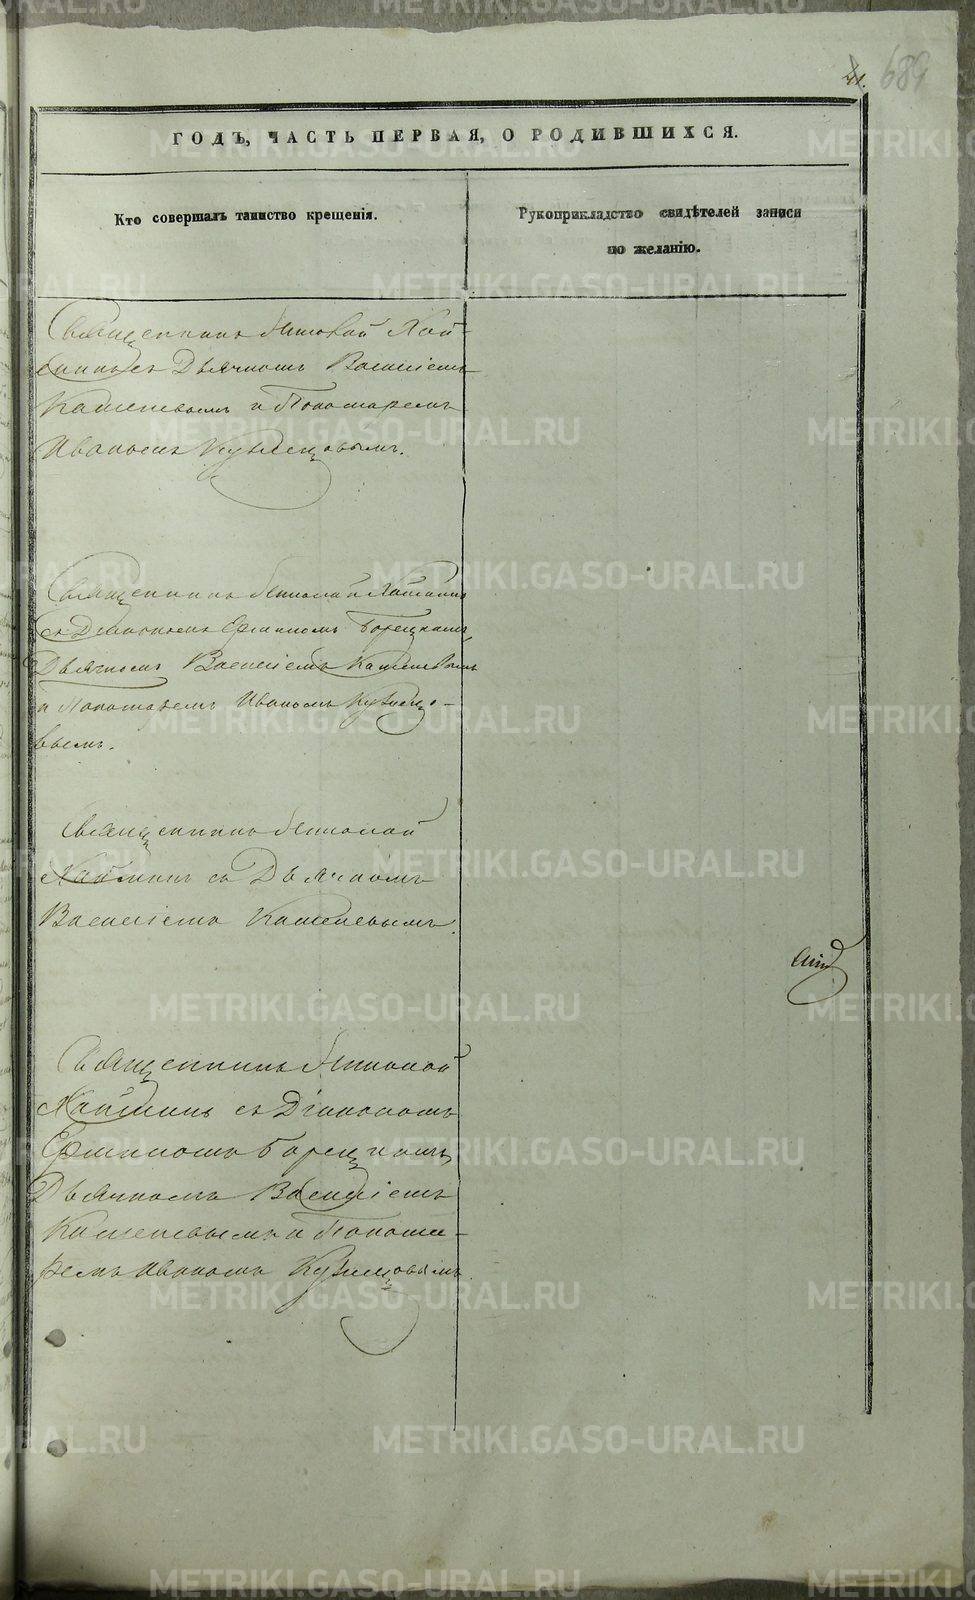 METRIKI.GASO-URAL.RU
41.
689
ГОДЪ, ЧАСТЬ ПЕРВАЯ, О РОДИВШИХСЯ.
Кто совершалъ таинство крещенія.
Рукоприкладство свидѣтелей записи
по желанію.
Священникъ Николай
съ Дьячкомъ Василіемъ
Каменевымъ и Пономаремъ
Иваномъ Кузнецовымъ.
Священникъ Николай
съ Діакономъ Борецкимъ,
Дьячкомъ Василіемъ Каменевымъ
и Пономаремъ Иваномъ Кузнецо-
вымъ.
Священникъ Николай
съ Дьячкомъ
Василіемъ Каменевымъ.
Священникъ Николай
съ Діакономъ
Борецкимъ,
Дьячкомъ Василіемъ
Каменевымъ и Понома-
ремъ Иваномъ Кузнецовымъ.